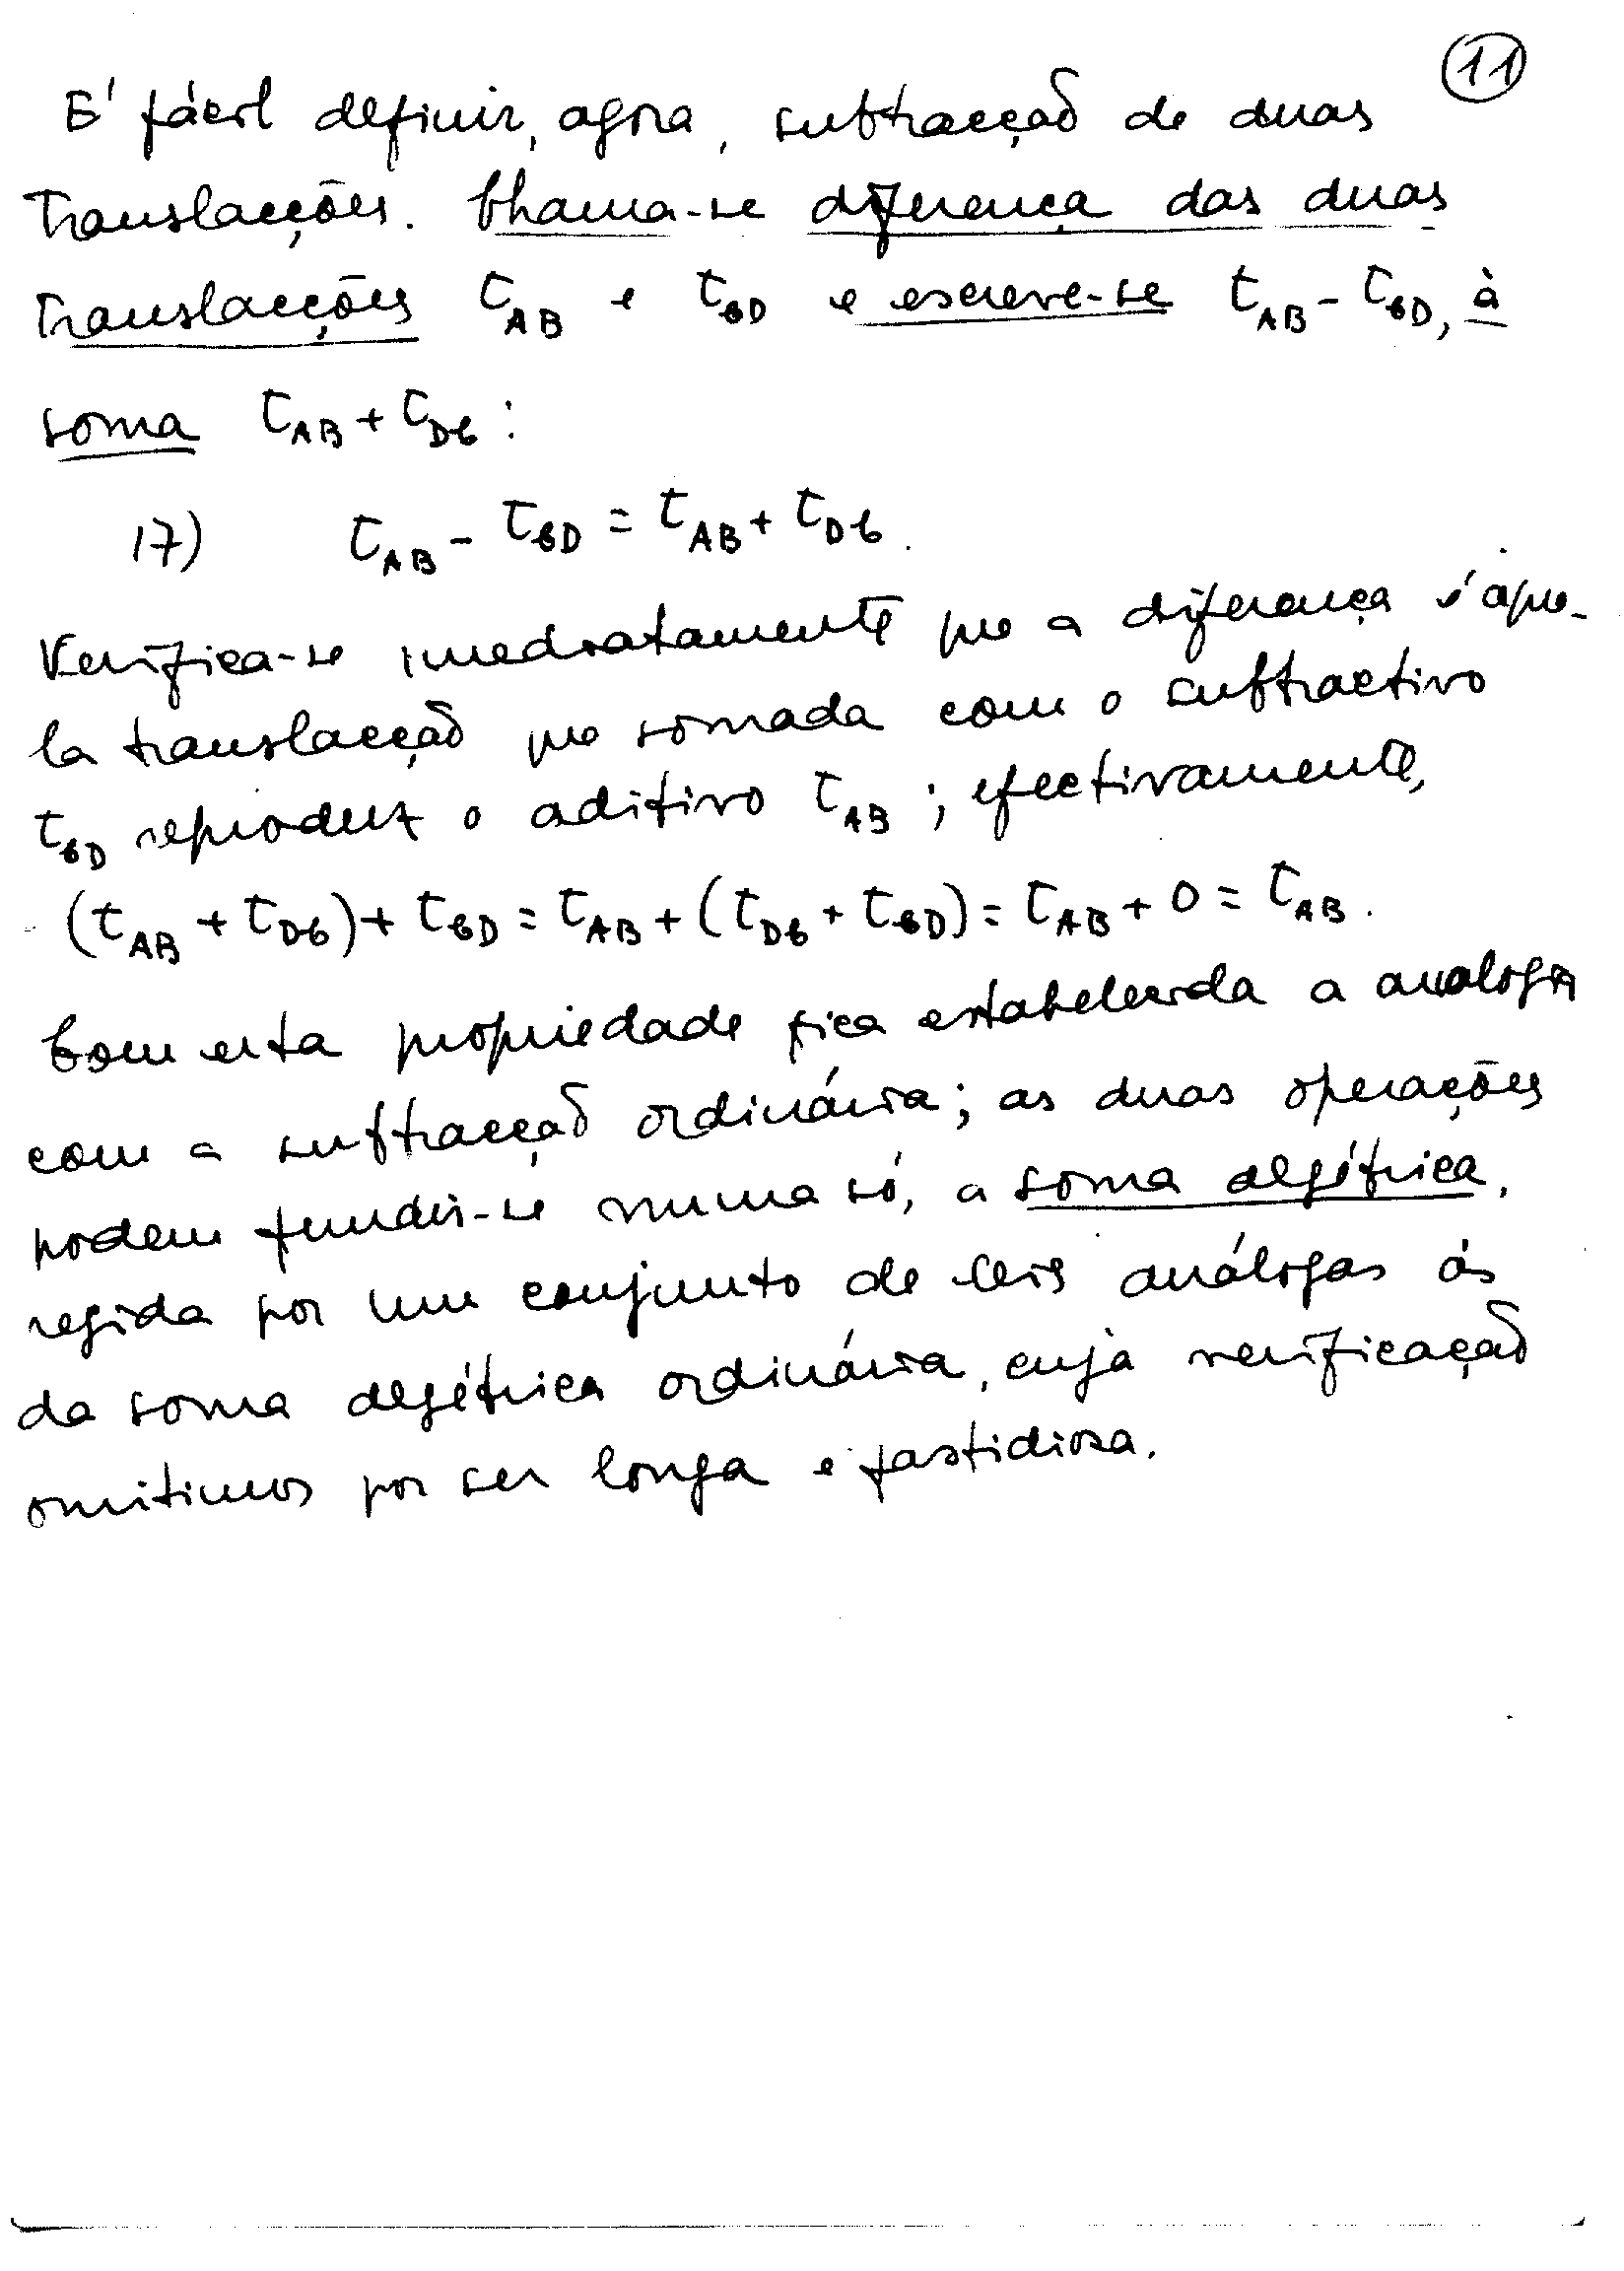 11
É fácil definir, agora, subtracção de duas
Translacções. Chama-se diferença das duas
Translacções τ_AB e τ_CD e escreve-se τ_AB - τ_CD, à
soma τ_AB + τ_DC :
17) τ_AB - τ_CD = τ_AB + τ_DC.
Verifica-se imediatamente que a diferença é aque-
la translacção que somada com o subtractivo
τ_CD reproduz o aditivo τ_AB ; efectivamente,
(τ_AB + τ_DC) + τ_CD = τ_AB + (τ_DC + τ_CD) = τ_AB + 0 = τ_AB.
Com esta propriedade fica estabelecida a analogia
com a subtracção ordinária; as duas operações
podem fundir-se numa só, a soma algébrica,
regida por um conjunto de leis análogas às
da soma algébrica ordinária, cuja verificação
omitimos por ser longa e fastidiosa.